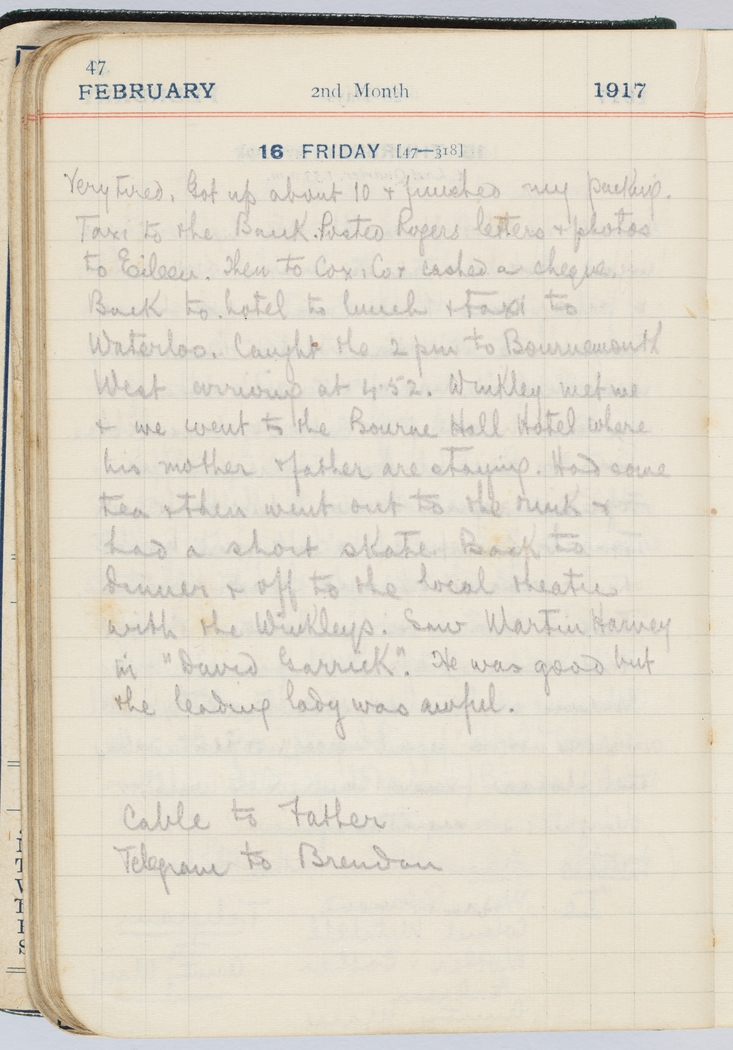 47
FEBRUARY 2nd Month 1917
16 FRIDAY [47—318]
Very tired. Got up about 10 & finished my packing.
Taxi to the Bank. Posted Rogers letters & photos
to Eileen. Then to Cox & Co & cashed a cheque.
Back to hotel to lunch & taxi to
Waterloo. Caught the 2 pm to Bournemouth
West arriving at 4.52. Winkley met me
& we went to the Bourne Hall Hotel where
his mother & father are staying. Had some
tea & then went out to the rink &
had a short skate. Back to
dinner & off to the local theatre
with the Winkleys. Saw Martin Harvey
in "David Garrick". He was good but
the leading lady was awful.
Cable to Father
Telegram to Brendan